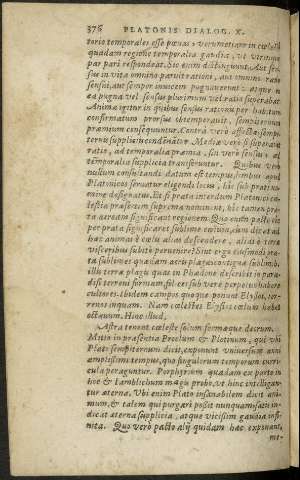 376 PLATONIS DIALOG. X.
torio temporales esse pœnas; verumetiam in cœlesti
quadam regione temporalia gaudia, ut utrinque
par pari respondeat. Sic enim distinguunt. Aut sen-
sus in vita omnino paruit rationi, aut omnino ratio
sensui, aut semper invicem pugnaverunt: atque in
ea pugna vel sensus plurimum vel ratio superabat.
Animæ igitur in quibus sensus rationi per habitum
confirmatum prorsus obtemperavit, sempiternum
præmium consequuntur. Contrà verò affectæ sempi-
ternis suppliciis condēnātur. Mediæ verò si superavit
ratio, ad temporalia præmia, sin verò sensus, ad
tēporalia supplicia transferuntur. Quibus verò
nullum consistendi datum est tempus, limbus apud
Platonicos servatur eligendi locus, hic sub prati no-
mine designatus. Et si prata interdum Platonici cæ-
lestia præsertim suprema nominant, hic tamen pra-
ta aëream significant regionem. Quo enim pacto hic
per prata significaret sublime cœlum, cum dicat ad
hæc animas è cœlis alias descendere, alias è terræ
visceribus subito pervenire? Sint ergo ejusmodi pra-
ta sublimes quædam aëris plagæ contiguæ sublimib.
illis terræ plagis quas in Phædone describit in para-
disi terreni formam, sil. cet sub verò perpetuò habere
cultores. Ibidem campos quoque ponunt Elysios, ter-
renos inquam. Nam cœlestes Elysios cœlum habet
octavum. Hinc illud,
Astra tenent cœleste solum formæque deorum.
Mitto in præsentia Proclum & Plotinum, qui ubi
Plato sempiternum dicit, exponunt universum ævi
amplissimi tempus, quo singulorum temporum curri-
cula peraguntur. Porphyrium quadam ex parte in
hoc & Iamblichum magis probo, ut hinc intelligan-
tur æterna. Ubi enim Plato insanabilem dicit ani-
mum, & talem qui purgari possit nunquam: satis in-
dicat æterna supplicia, atque vicissim gaudia infi-
nita. Quo verò pacto alij quidam hæc exponant,
me-